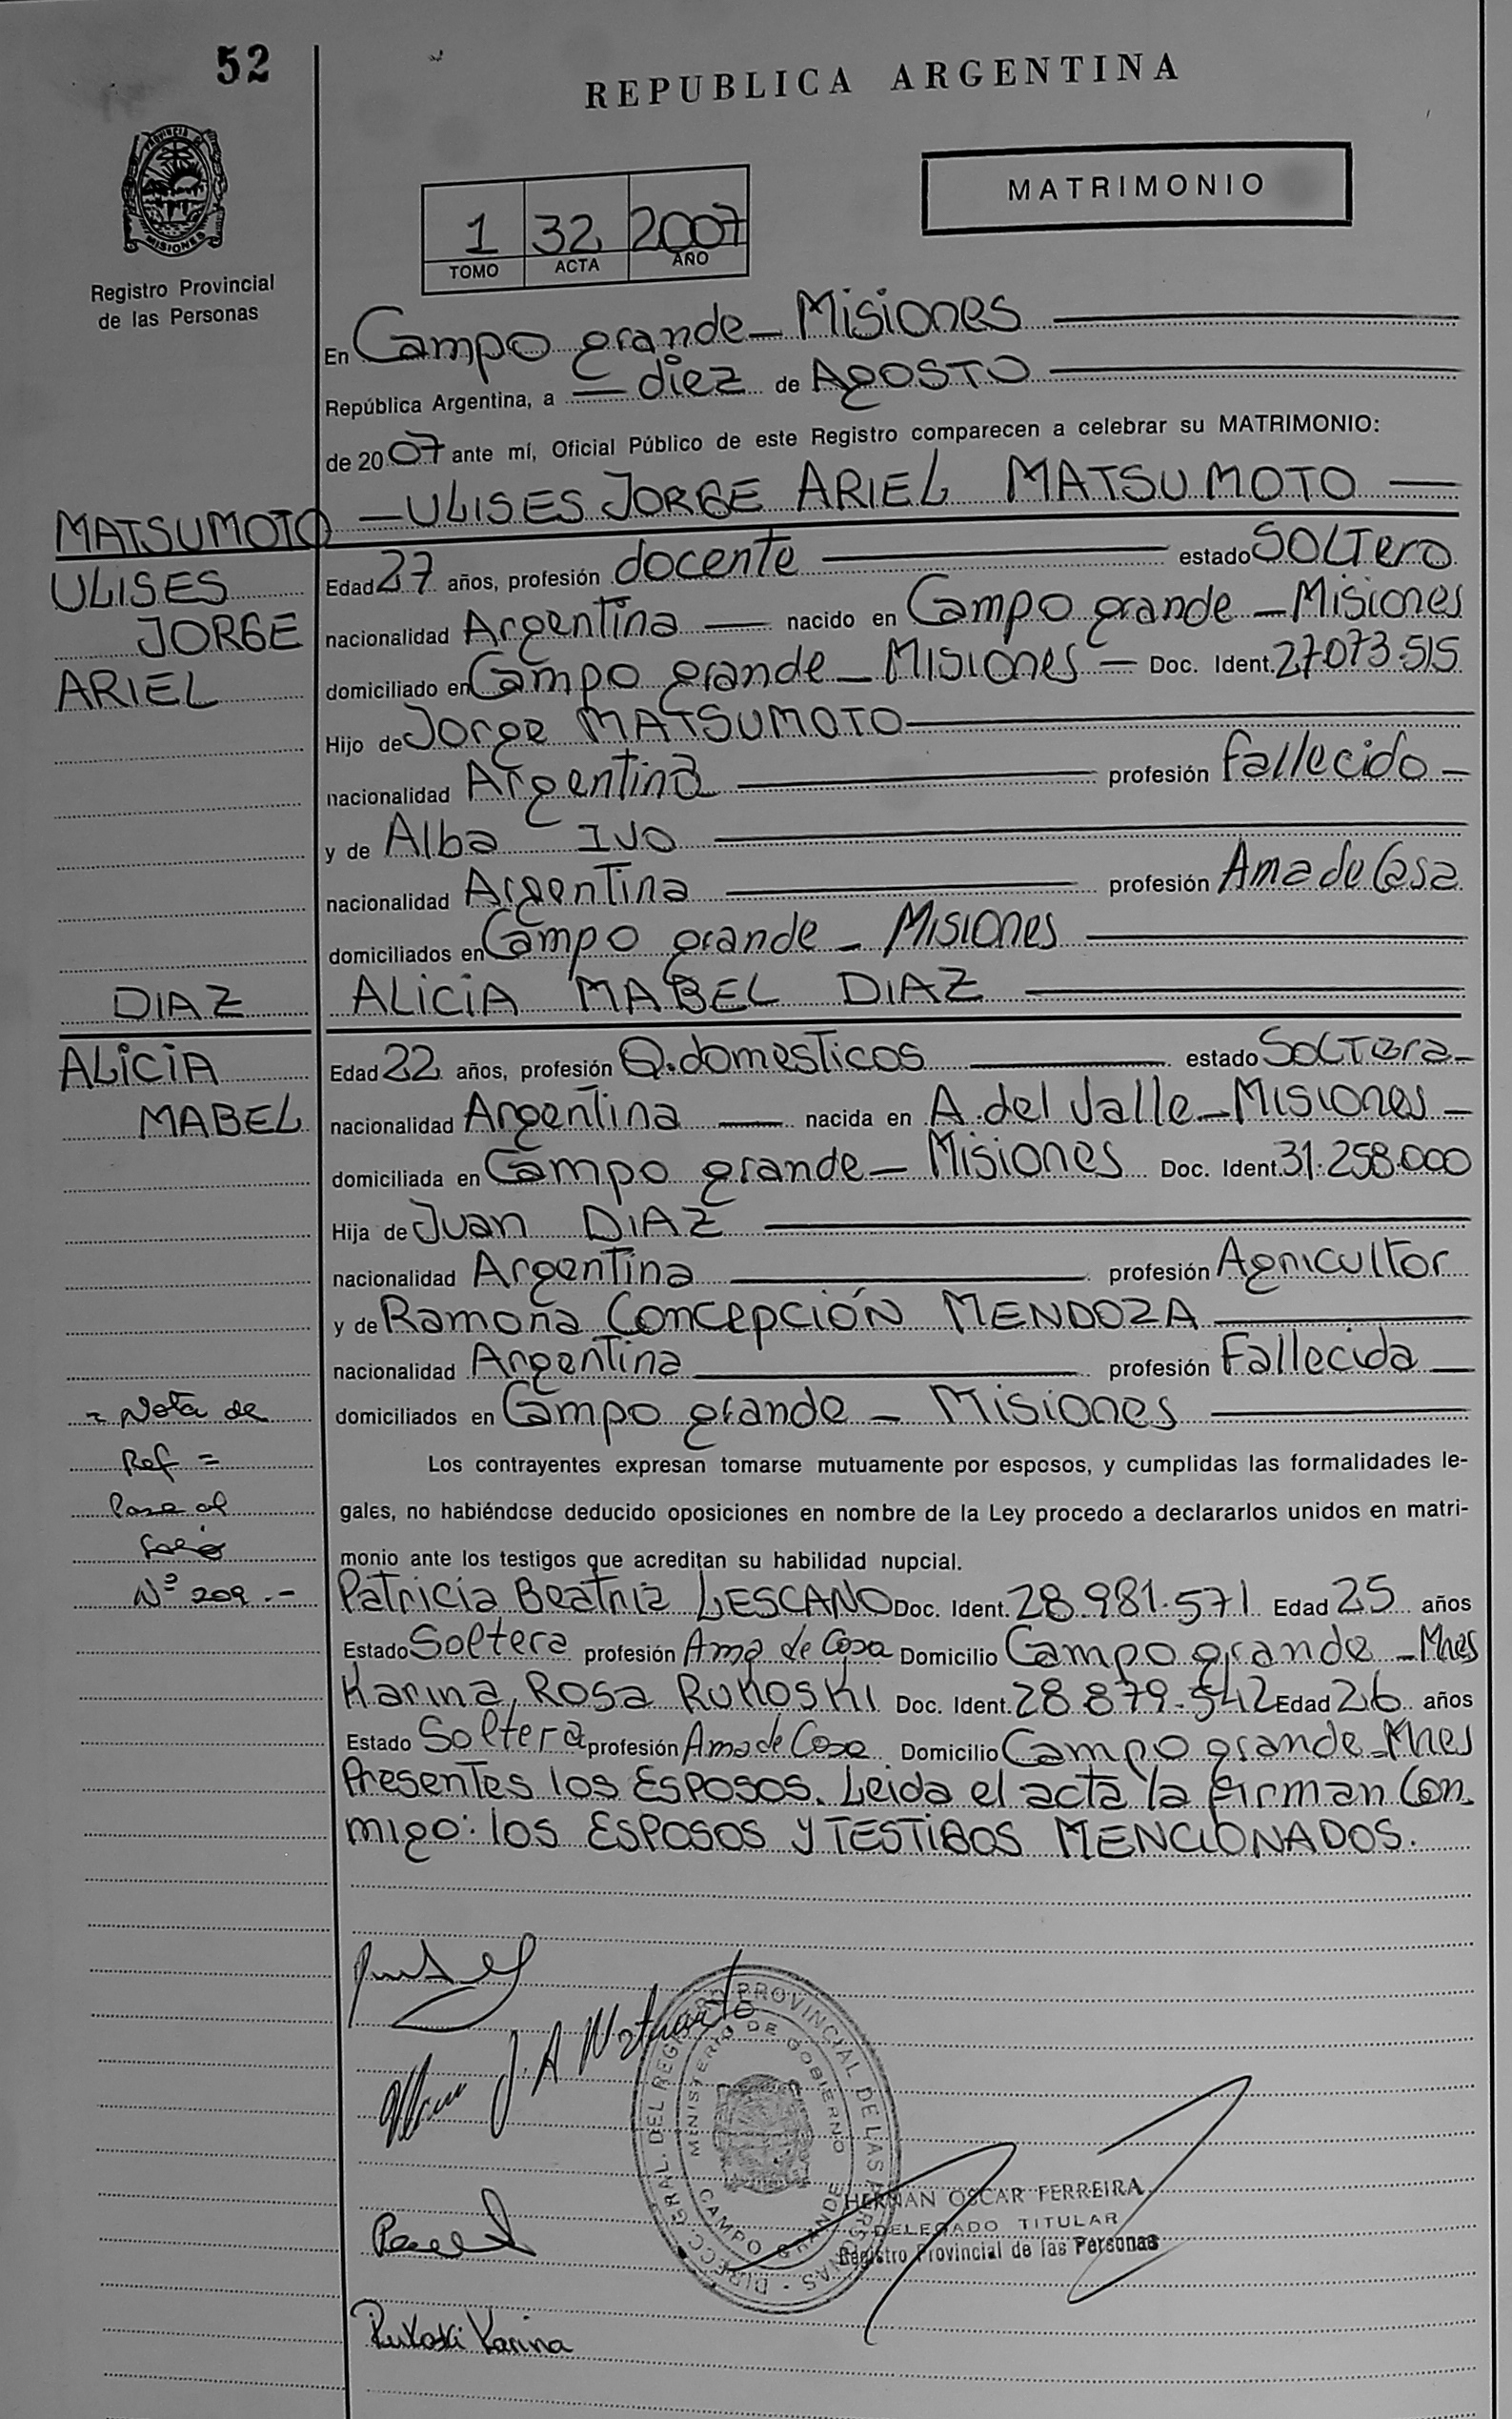 52
REPUBLICA ARGENTINA
MATRIMONIO
PROVINCIA
MISIONES
Registro Provincial
de las Personas
1 32 2007
TOMO ACTA AÑO
En Campo grande - Misiones
República Argentina, a - diez de AgOSTO
de 2007 ante mí, Oficial Público de este Registro comparecen a celebrar su MATRIMONIO:
MATSUMOTO - ULISES JORGE ARIEL MATSUMOTO
ULISES Edad 27 años, profesión docente estado SOLTero
JORGE nacionalidad Argentina nacido en Campo grande - Misiones
ARIEL domiciliado en Campo grande - Misiones - Doc. Ident. 27.073.515
Hijo de Jorge MATSUMOTO
nacionalidad Argentina profesión fallecido -
y de Alba IVO
nacionalidad Argentina profesión Ama de Casa
domiciliados en Campo grande - Misiones
DIAZ ALICIA MABEL DIAZ
ALICIA Edad 22 años, profesión Q.domesticos estado SOLTera -
MABEL nacionalidad Argentina nacida en A. del Valle - Misiones -
domiciliada en Campo grande - Misiones Doc. Ident. 31.258.000
Hija de Juan DIAZ
nacionalidad Argentina profesión Agricultor
y de Ramona Concepción MENDOZA
nacionalidad Argentina profesión Fallecida
= Nota de domiciliados en Campo grande - Misiones
Ref = Los contrayentes expresan tomarse mutuamente por esposos, y cumplidas las formalidades le-
Pase al gales, no habiéndose deducido oposiciones en nombre de la Ley procedo a declararlos unidos en matri-
folio monio ante los testigos que acreditan su habilidad nupcial.
Nº 209.- Patricia Beatriz LESCANO Doc. Ident. 28.981.571 Edad 25 años
Estado Soltera profesión Ama de Casa Domicilio Campo grande - Mnes
Karina, Rosa RUKOSKI Doc. Ident. 28.879.542 Edad 26 años
Estado Soltera profesión Ama de Casa Domicilio Campo grande - Mnes
Presentes los ESPOSOS. Leida el acta la firman Con-
migo: los ESPOSOS y TESTIGOS MENCIONADOS.
J. A Matsumoto
DIRECC. GRAL. DEL REGISTRO PROVINCIAL DE LAS PERSONAS
MINISTERIO DE GOBIERNO
CAMPO GRANDE
HERNAN OSCAR FERREIRA
DELEGADO TITULAR
Registro Provincial de las Personas
Rukoski Karina